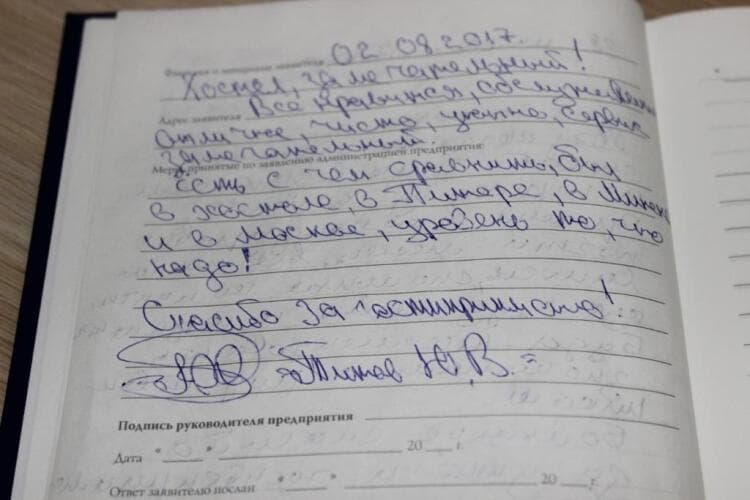 02.08.2017.
Фамилия и инициалы заявителя
Хостел, замечательный!
Адрес заявителя
Все нравится, обслуживание
отличное, чисто, уютно, сервис
замечательный.
Меры, принятые по заявлению администрацией предприятия:
Есть с чем сравнить, был
в хостеле, в Питере, в Минске
и в Москве, уровень то, что
надо!
Спасибо за гостеприимство!
Ю.В.
Подпись руководителя предприятия
Дата " " 20 г.
Ответ заявителю послан " " 20 г.